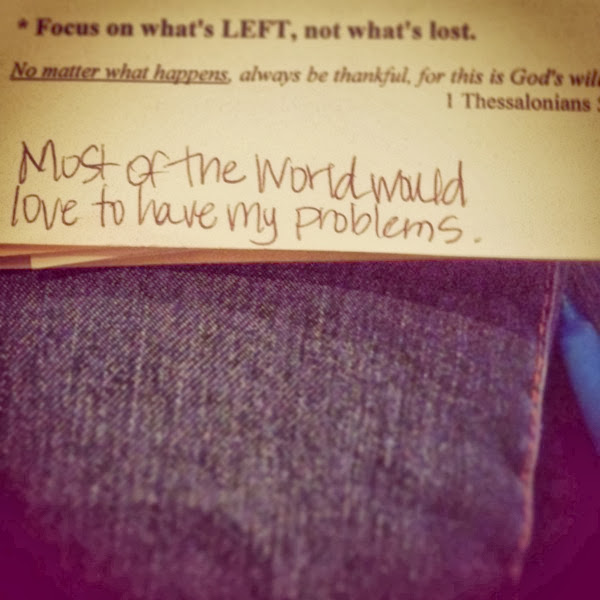 * Focus on what's LEFT, not what's lost.
No matter what happens, always be thankful, for this is God's will
1 Thessalonians
Most of the World would
love to have my problems.